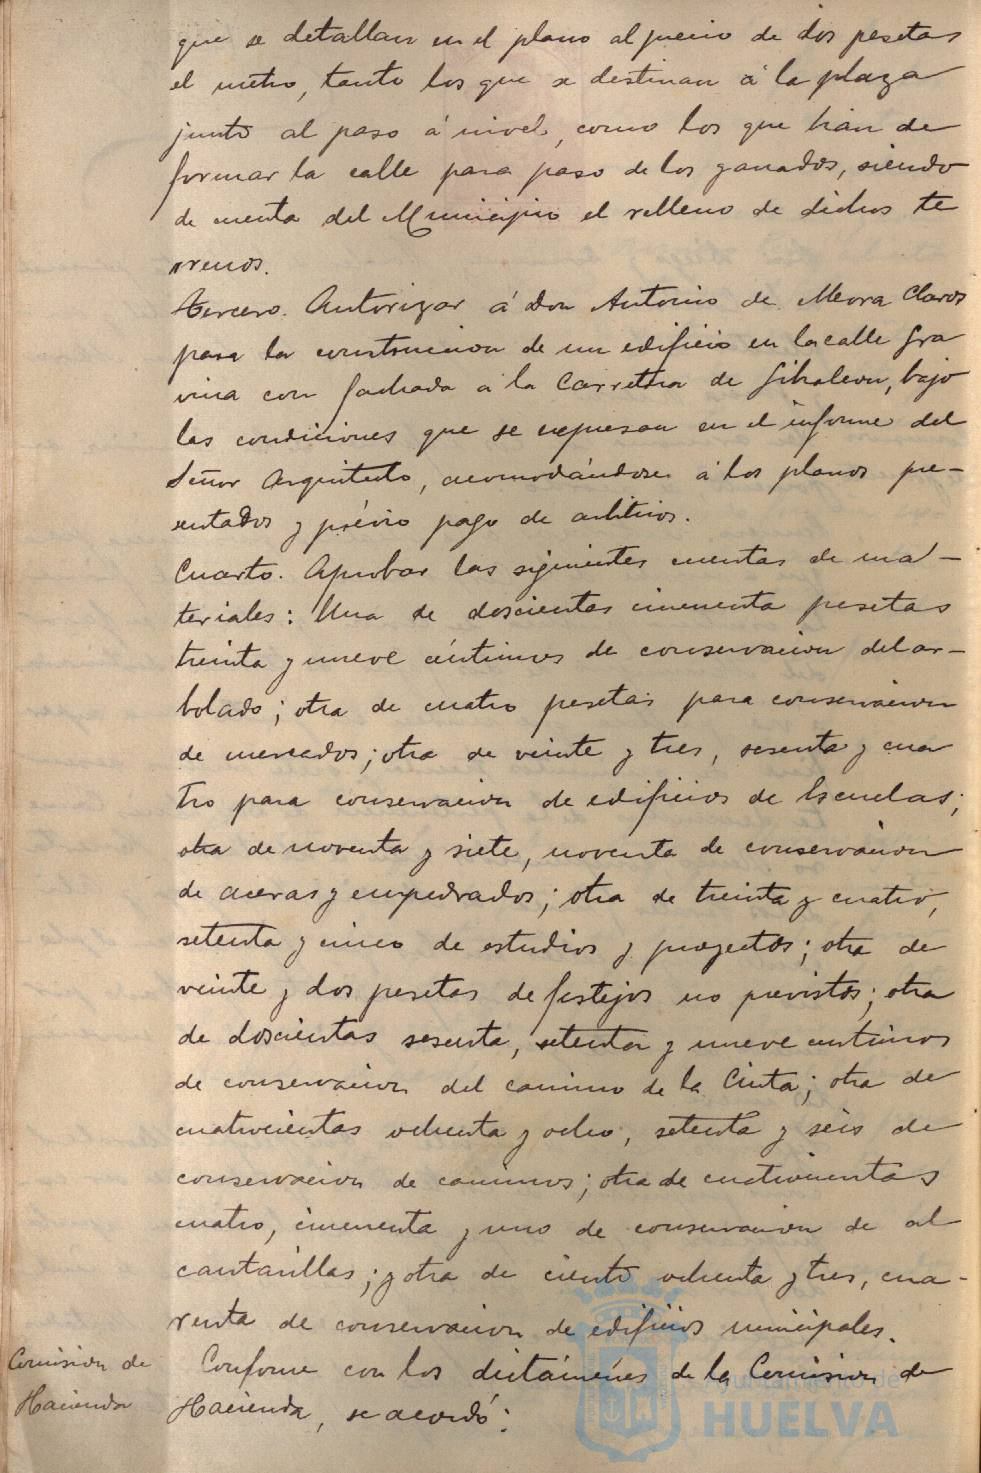 que se detallan en el plano al precio de dos pesetas
el metro, tanto los que se destinan á la plaza
junto al paso á nivel, como los que han de
formar la calle para paso de los ganados, siendo
de cuenta del Municipio el relleno de dichos te
rrenos.
Tercero. Autorizar á Don Antonio de Mora Claros
para la construccion de un edificio en la calle Gra
vina con fachada á la Carretera de Gibraleon, bajo
las condiciones que se expresan en el informe del
Señor Arquitecto, acomodándose á los planos pre-
sentados y prévio pago de arbitrios.
Cuarto. Aprobar las siguientes cuentas de ma-
teriales: Una de doscientas cincuenta pesetas
treinta y nueve céntimos de conservacion del ar-
bolado; otra de cuatro pesetas para conservacion
de mercados; otra de veinte y tres, sesenta y cua
tro para conservacion de edificios de Escuelas;
otra de noventa y siete, noventa de conservacion
de aceras y empedrados; otra de treinta y cuatro,
setenta y cinco de estudios y proyectos; otra de
veinte y dos pesetas de festejos no previstos; otra
de doscientas sesenta, setenta y nueve centimos
de conservacion del camino de la Cinta; otra de
cuatrocientas ochenta y ocho, setenta y seis de
conservacion de caminos; otra de cuatrocientas
cuatro, cincuenta y uno de conservacion de al
cantarillas; y otra de ciento ochenta y tres, cua-
renta de conservacion de edificios municipales.
Comision de Hacienda
Conforme con los dictámenes de la Comision de
Hacienda, se acordó:
Ayuntamiento de
HUELVA